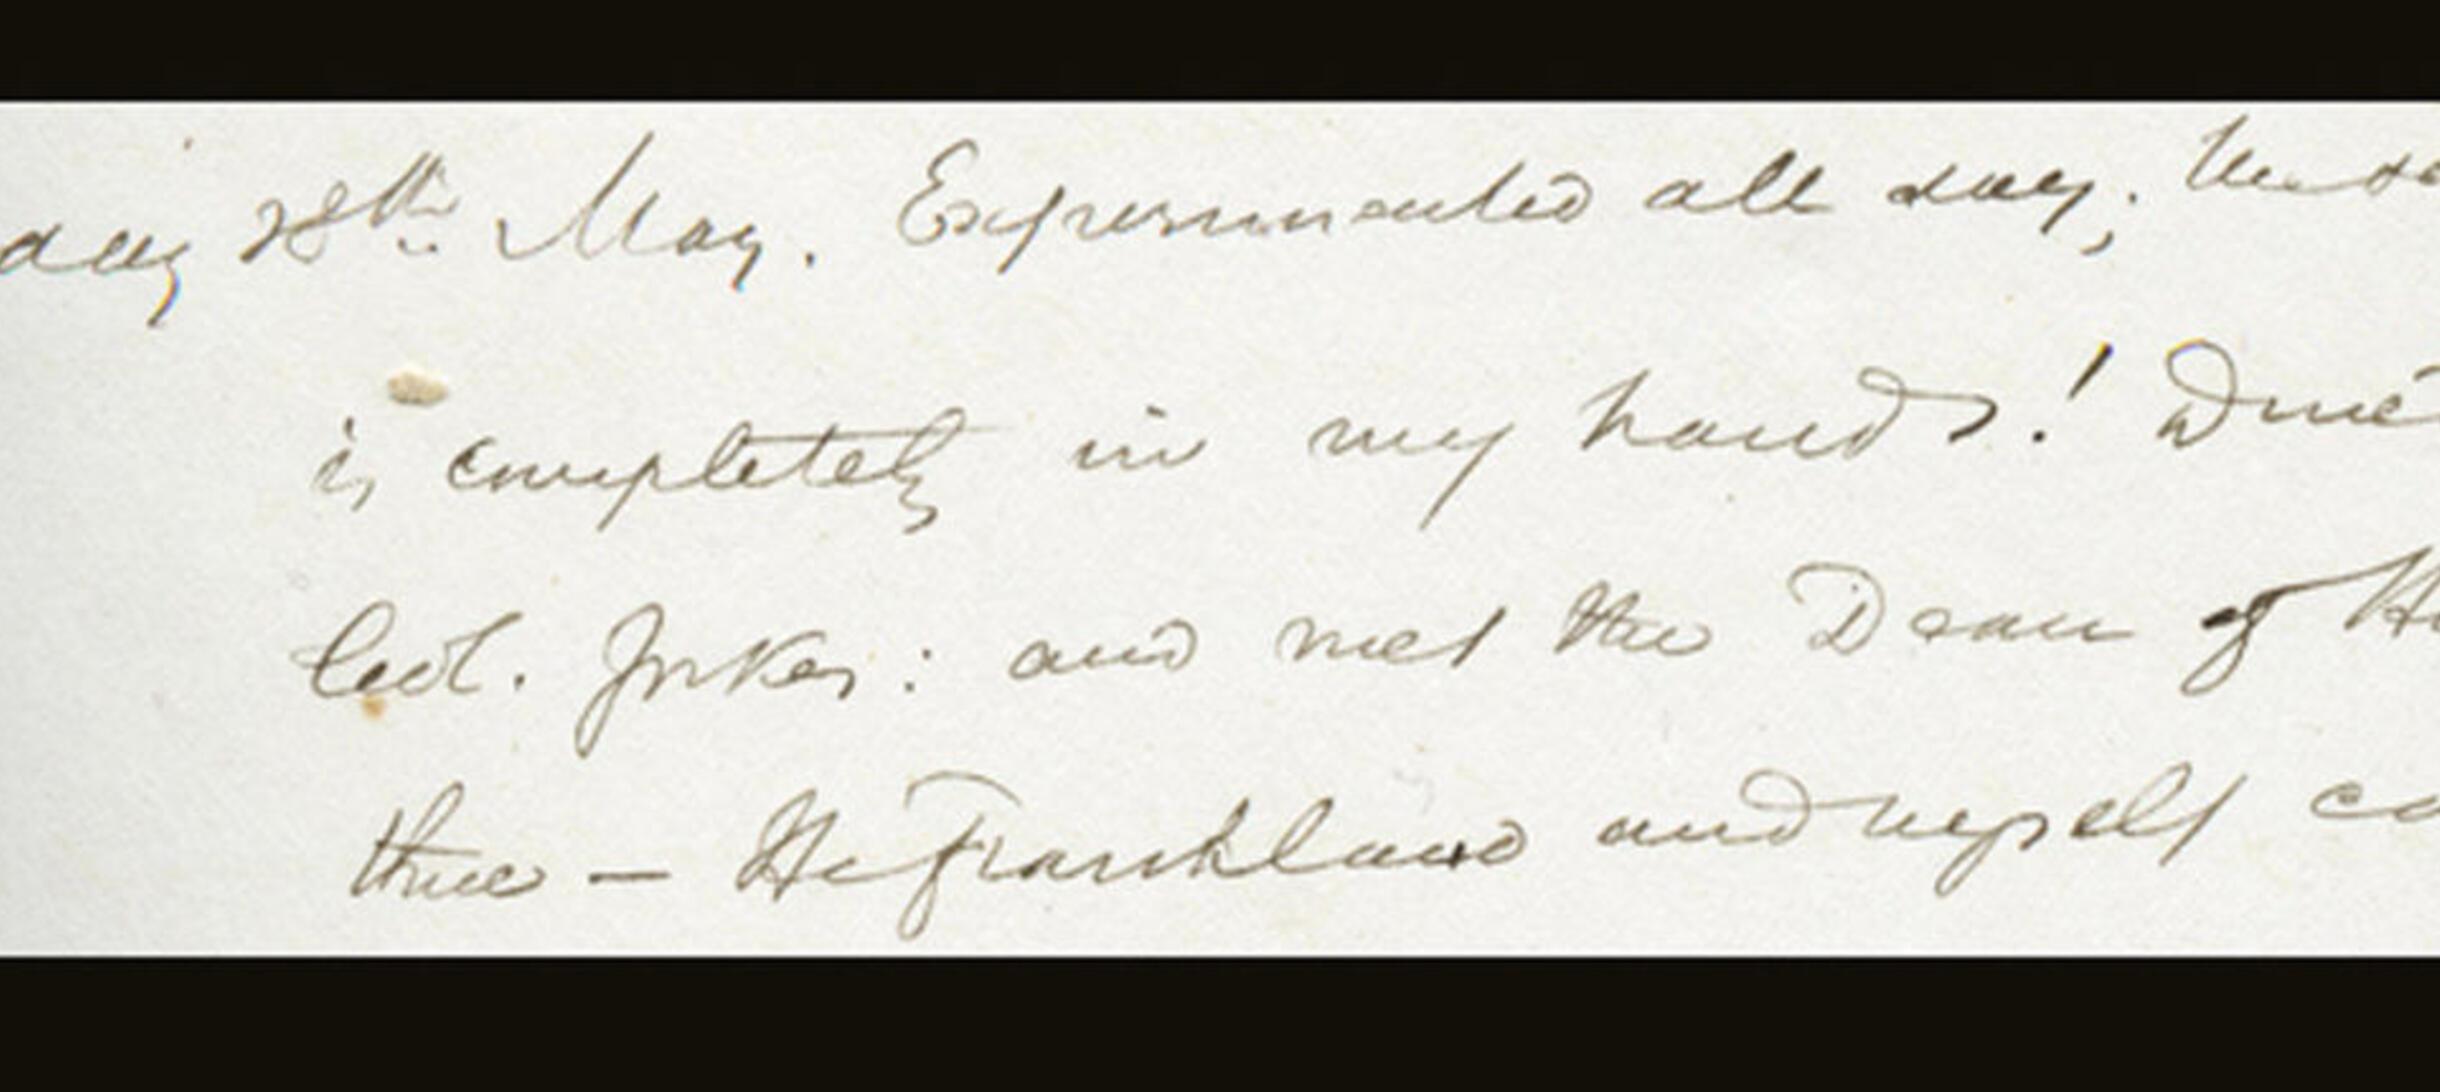 day 28th May. Experimented all day;
is completely in my hands!
Col. Yorkes: and met the Dean of
three — He Frankland and myself